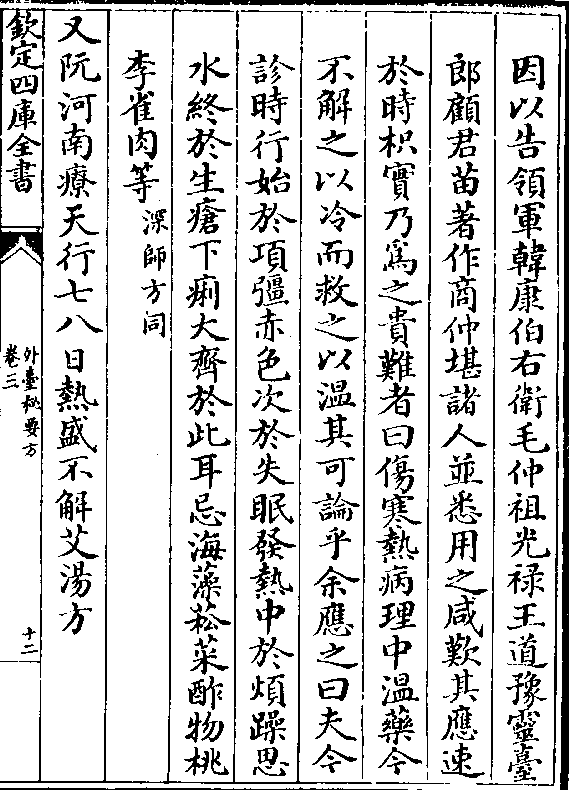 因以告領軍韓康伯右衛毛仲祖光禄王道豫靈臺
郎顧君苗著作商仲堪諸人並悉用之咸歎其應速
於時枳實乃為之貴難者曰傷寒熱病理中温藥今
不解之以冷而救之以温其可論乎余應之曰夫今
診時行始於項彊赤色次於失眠發熱中於煩躁思
水終於生瘡下痢大齊於此耳忌海藻菘菜酢物桃
李雀肉等深師方同
又阮河南療天行七八日熱盛不解艾湯方
欽定四庫全書
外臺秘要方
卷三
十二